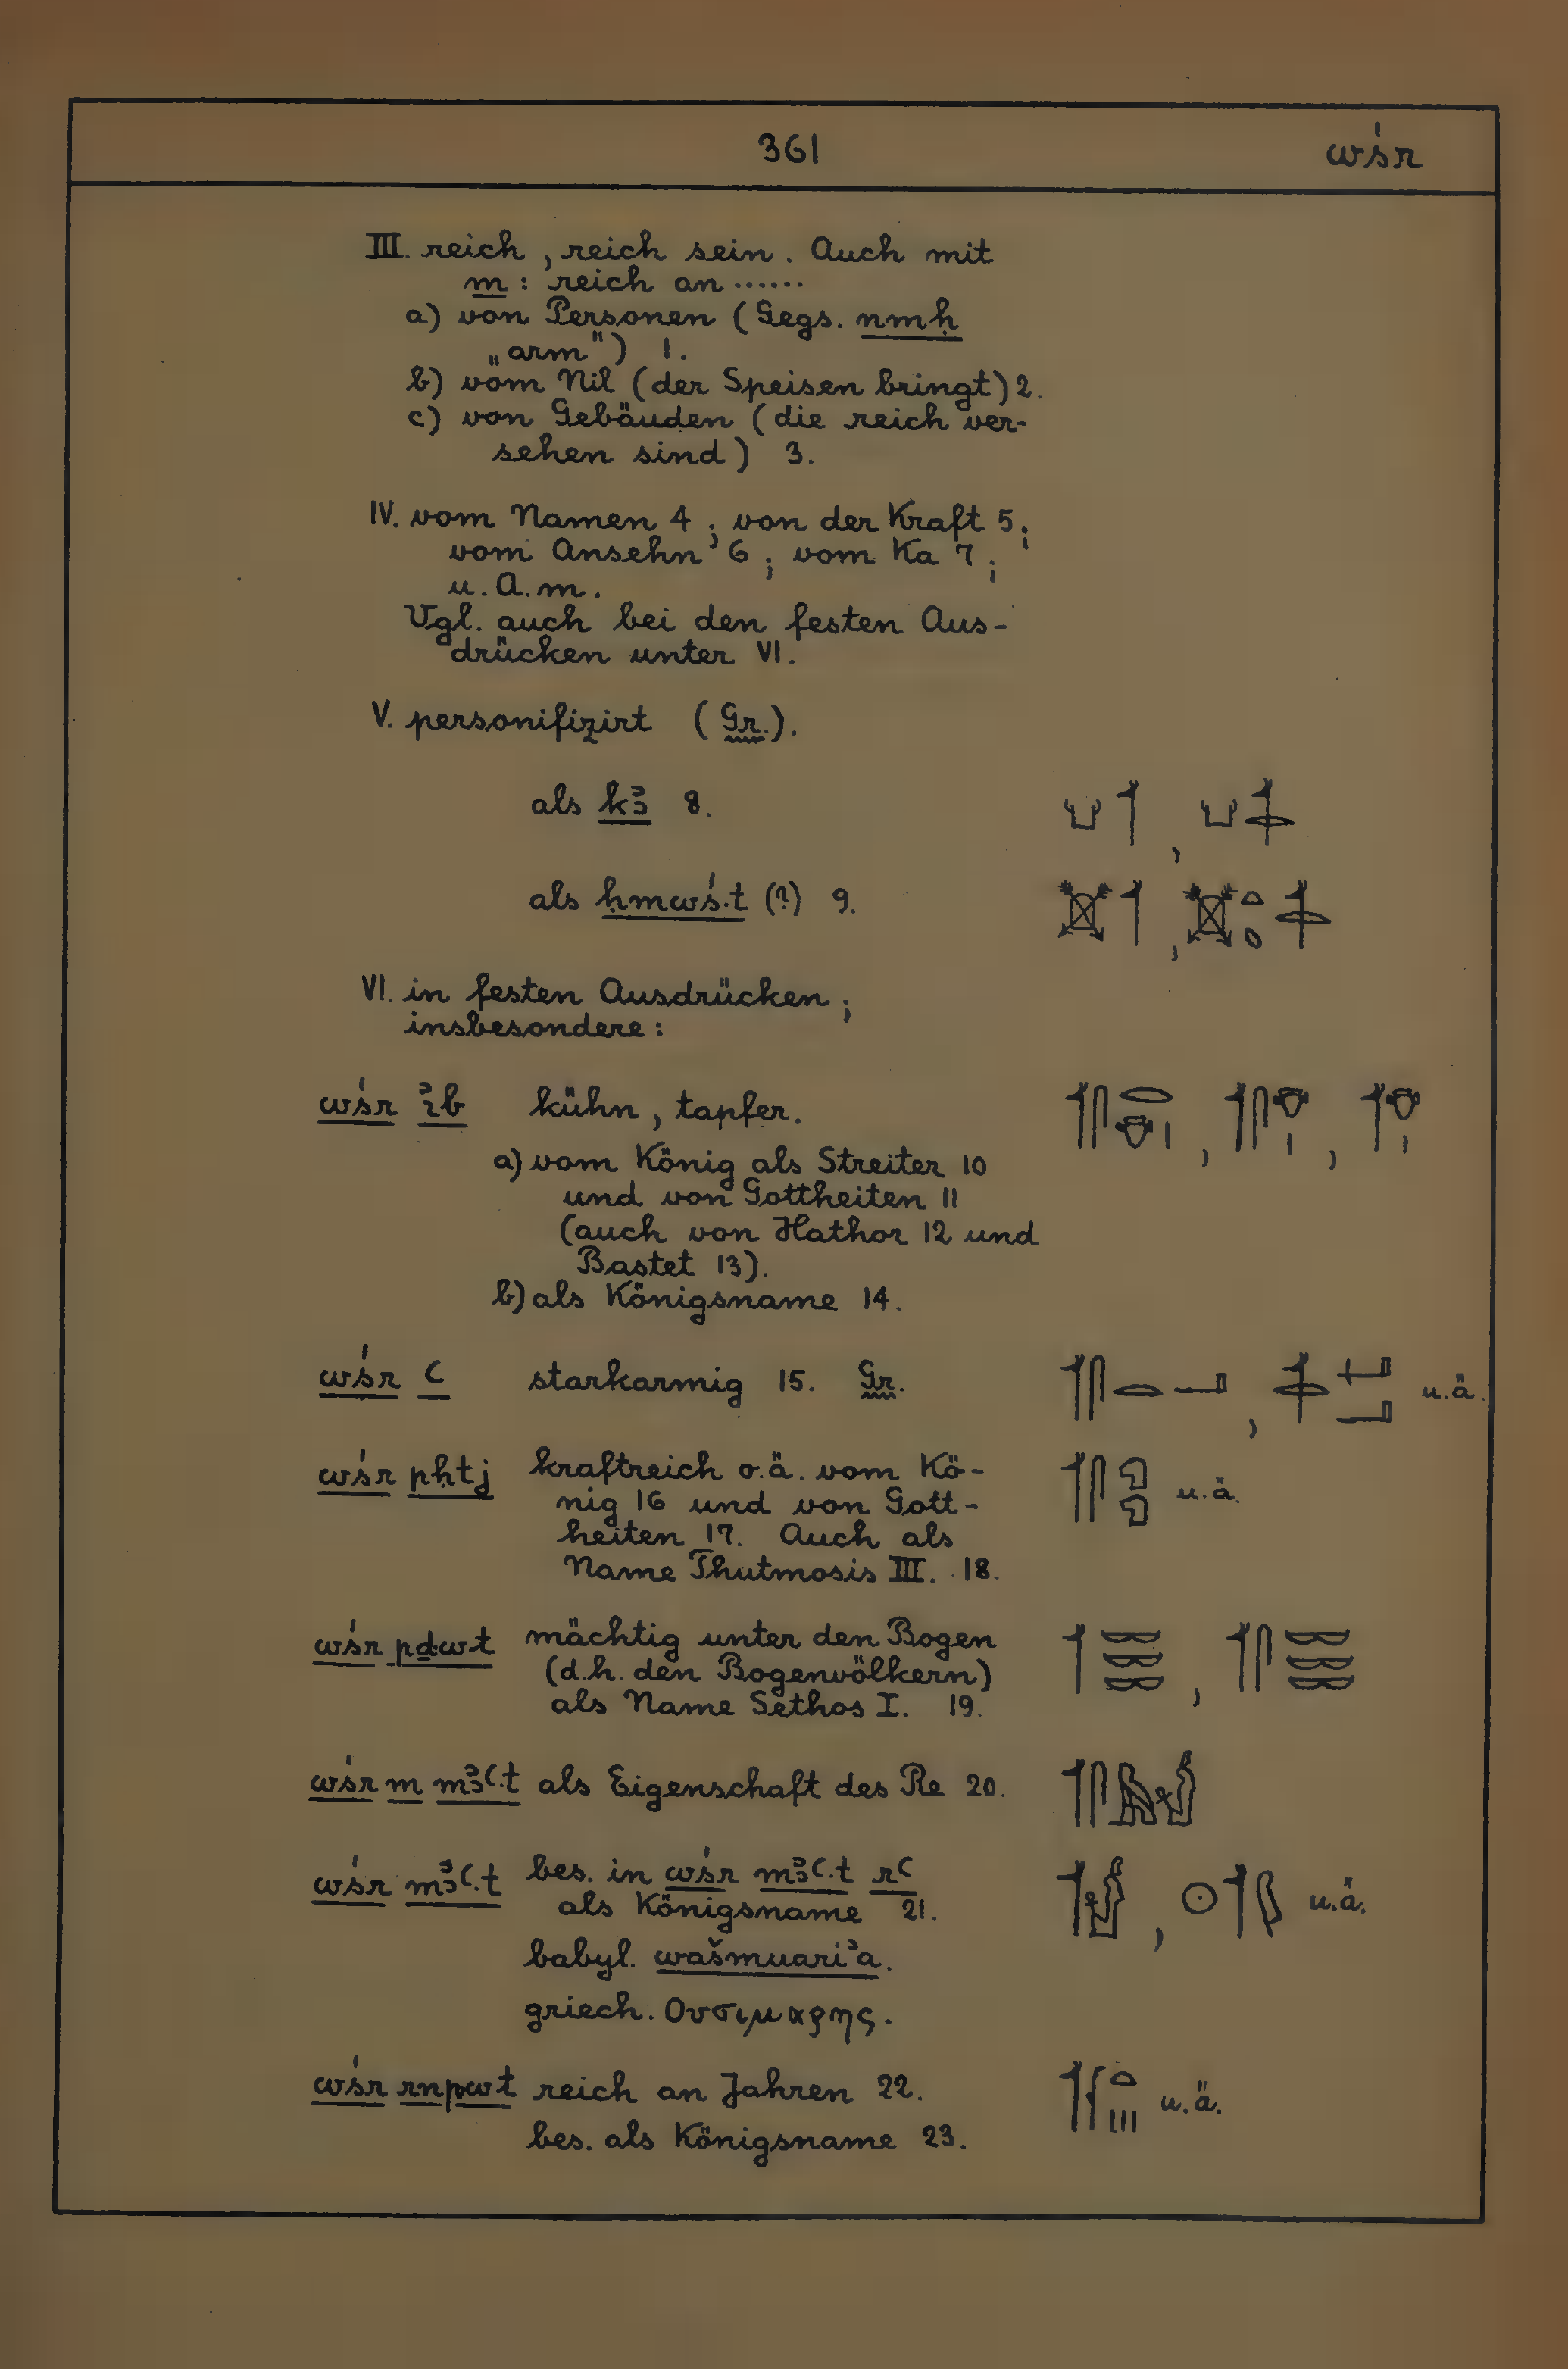 361 wśr
III. reich, reich sein. Auch mit
m : reich an ......
a) von Personen (Gegs. nmḥ
„arm") 1.
b) vom Nil (der Speisen bringt) 2.
c) von Gebäuden (die reich ver-
sehen sind) 3.
IV. vom Namen 4; von der Kraft 5;
vom Ansehn 6; vom Ka 7;
u. A. m.
Vgl. auch bei den festen Aus-
drücken unter VI.
V. personifizirt (Gr.).
als kꜣ 8. 𓂓𓄊 , 𓂓𓄊𓂋
als ḥmwś.t (?) 9.
VI. in festen Ausdrücken;
insbesondere:
wśr ꞽb kühn, tapfer. 𓄊𓋴𓂋𓄣𓏤 , 𓄊𓋴𓄣𓏤 , 𓄊𓄣𓏤
a) vom König als Streiter 10
und von Gottheiten 11
(auch von Hathor 12 und
Bastet 13).
b) als Königsname 14.
wśr ꜥ starkarmig 15. Gr. 𓄊𓋴𓂋𓂝 , u.ä.
wśr pḥtj kraftreich o.ä. vom Kö- 𓄊𓋴𓄇𓄇 u.ä.
nig 16 und von Gott-
heiten 17. Auch als
Name Thutmosis III. 18.
wśr pḏ.wt mächtig unter den Bogen 𓄊𓌔𓌔𓌔 , 𓄊𓋴𓌔𓌔𓌔
(d.h. den Bogenvölkern)
als Name Sethos I. 19.
wśr m mꜣꜥ.t als Eigenschaft des Re 20. 𓄊𓋴𓅓𓁦
wśr mꜣꜥ.t bes. in wśr mꜣꜥ.t rꜥ 𓄊𓁦 , 𓇳𓄊𓆄 u.ä.
als Königsname 21.
babyl. wašmuariʾa.
griech. Ουσιμαρης.
wśr rnpwt reich an Jahren 22. 𓄊𓆳𓏏𓏥 u.ä.
bes. als Königsname 23.